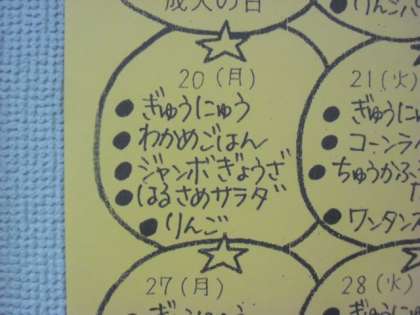 成人の日
りんごパ
20(月)
●ぎゅうにゅう
●わかめごはん
●ジャンボぎょうざ
●はるさめサラダ
●りんご
21(火)
●ぎゅうにゅ
●コーンラ
●ちゅうかふ
●ワンタン
27(月)
28(火)
●ぎゅうに